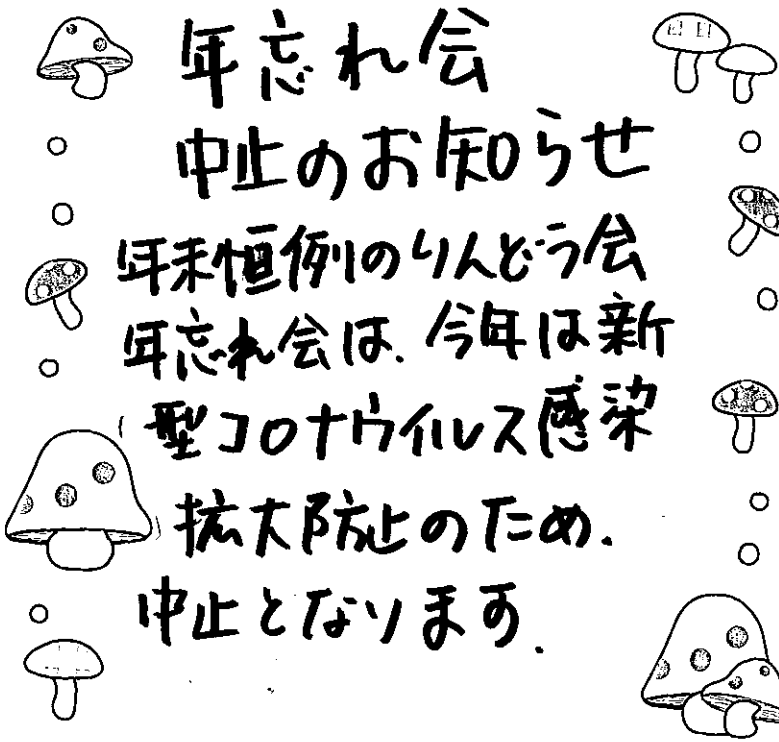 年忘れ会
中止のお知らせ
年末恒例のりんどう会
年忘れ会は、今年は新
型コロナウイルス感染
拡大防止のため、
中止となります。